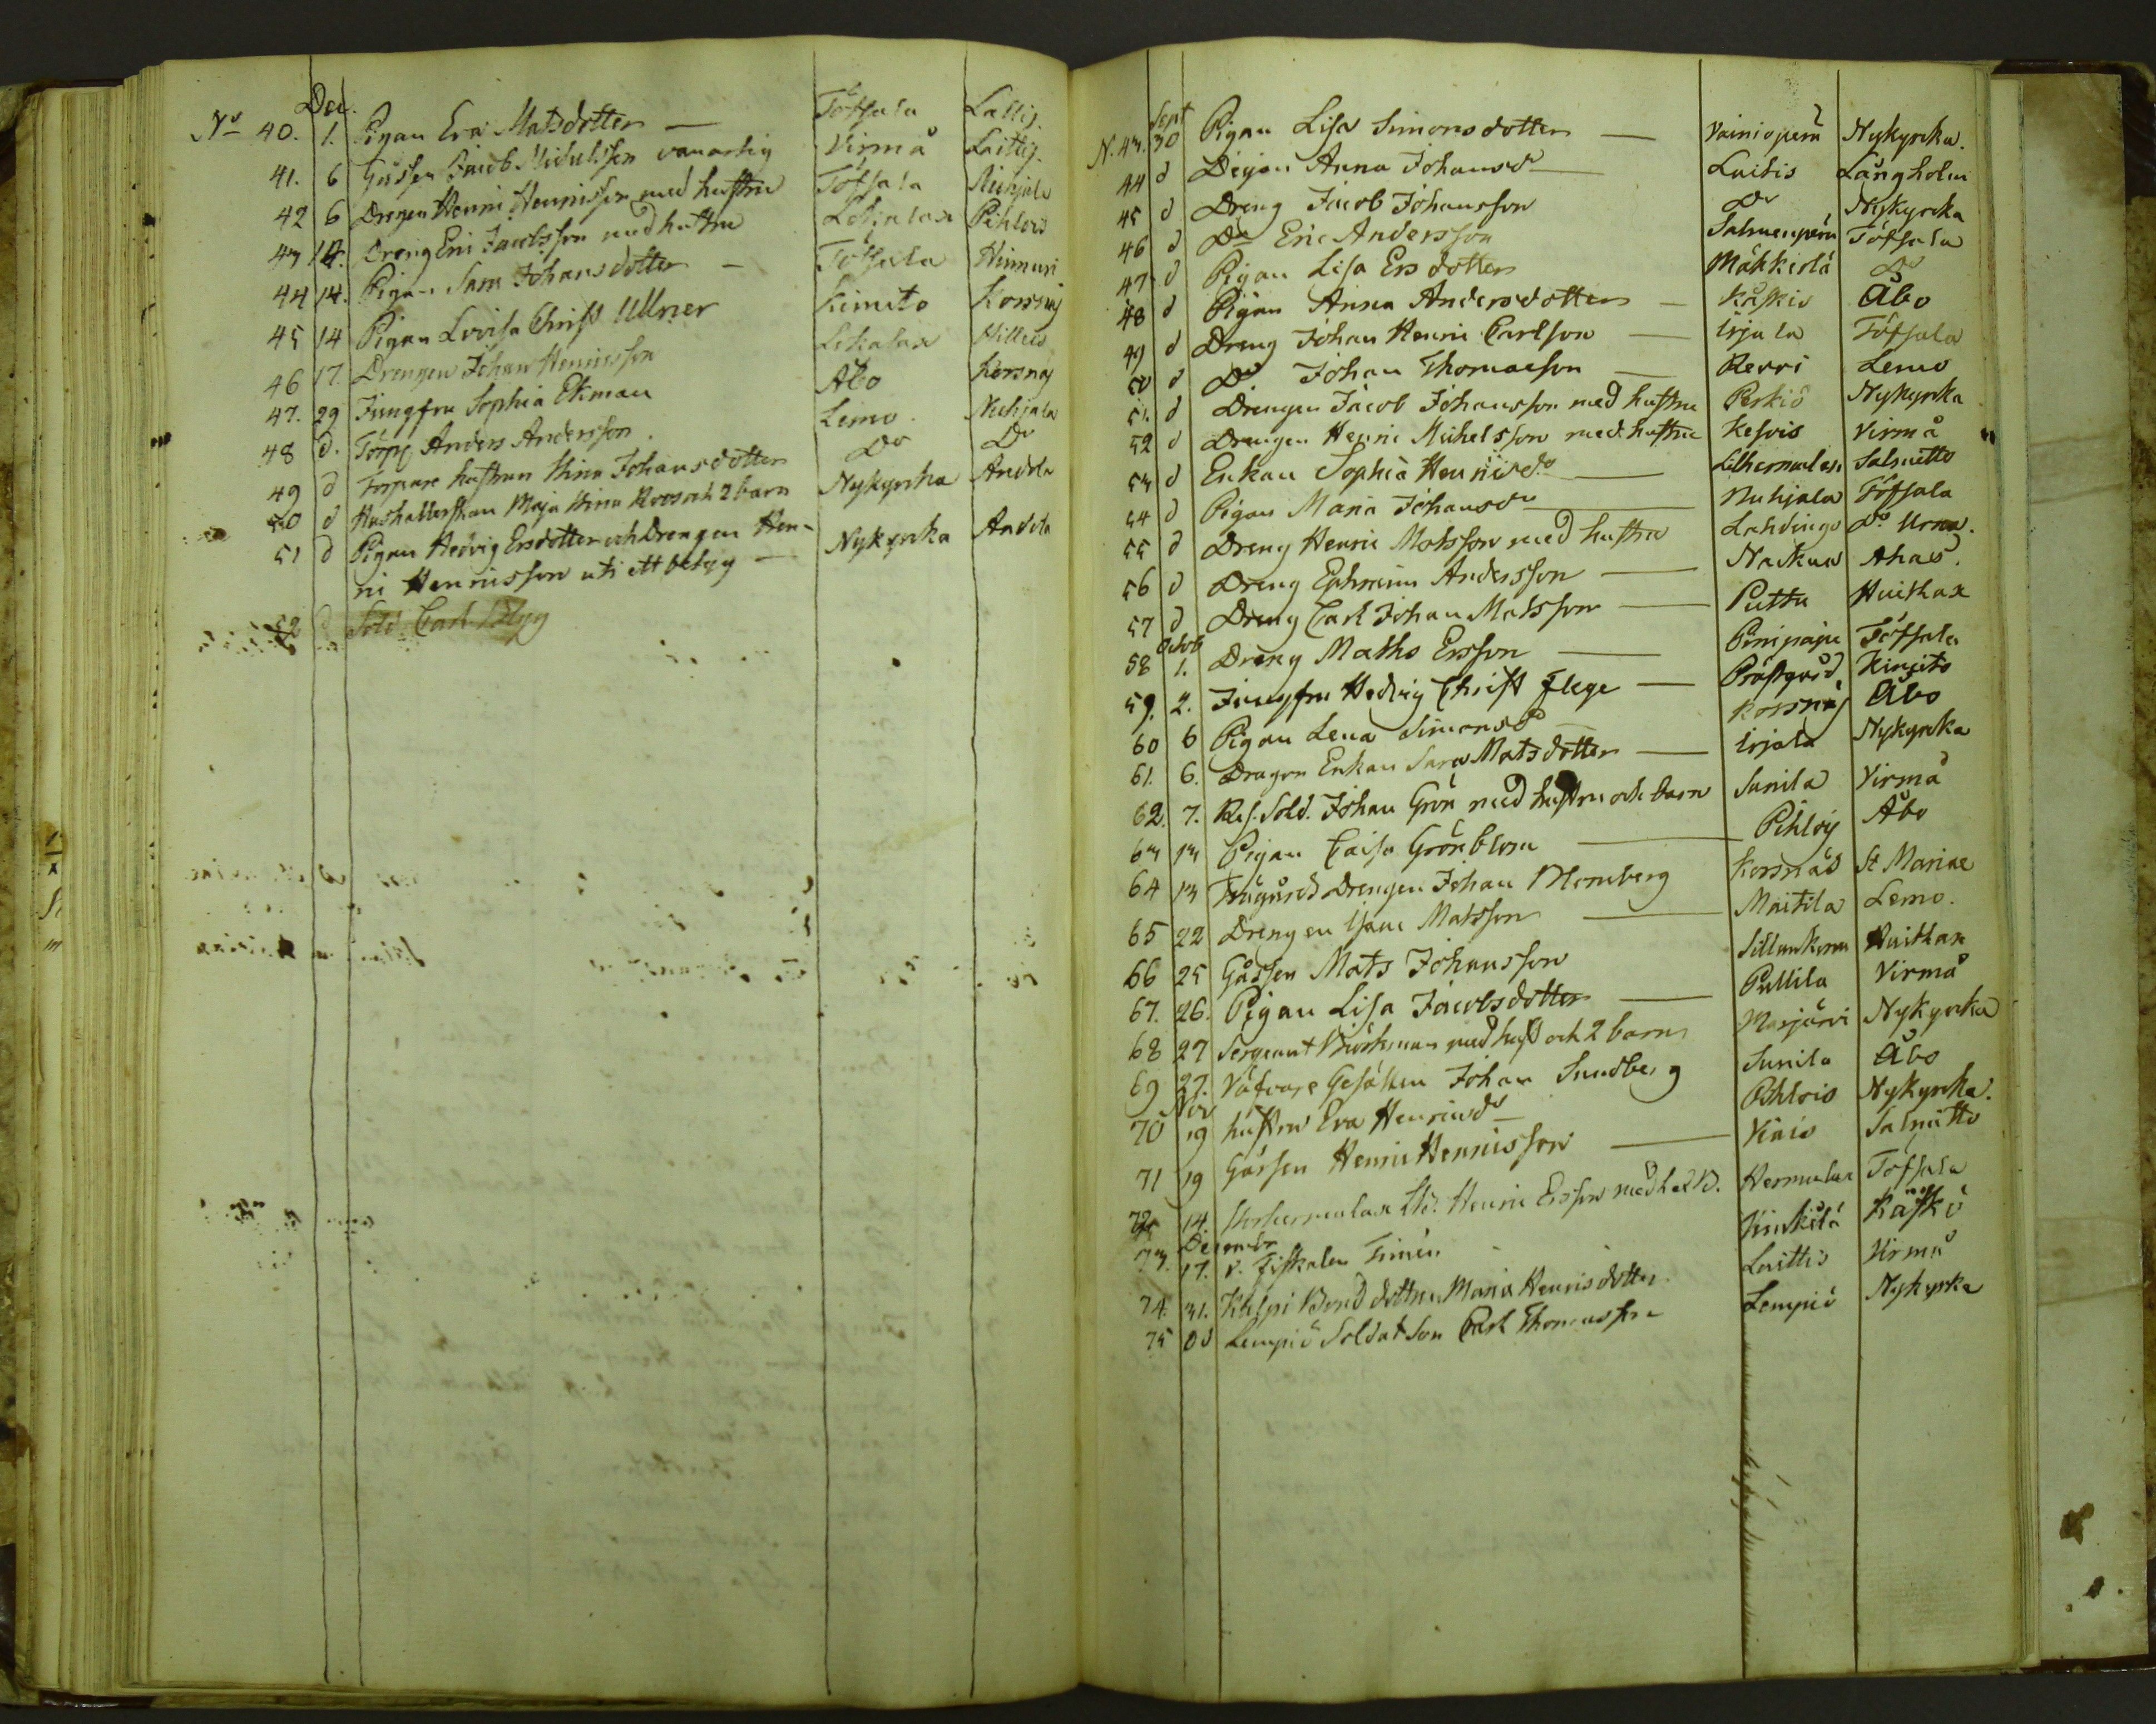 Dec.
No 40. 1. Pigan Eva Matsdotter — Töfsala Laitis.
41. 6 Gossen Jacob Michelsson vanartig Virmå Laitis.
42 6 Drengen Henric Henricsson med hustru Töfsala Nuhjala
43 14. Dreng Eric Jacobsson med hustru Lokalax Pihlois
44 14. Pigan Sara Johansdotter — Töfsala Hinnuri
45 14 Pigan Lovisa Christ Ullner Kimito Korsnäs
46 17. Drengen Johan Henricsson Lokalax Hilleis
47. 29 Jungfru Sophia Ekman Åbo Korsnäs
48 d. Torp. Anders Andersson Lemo Nuhjala
49 d Torpare hustrun Stina Johansdotter Do Do
50 d Hushållerskan Maja Stina Roos och 2 barn Nykyrcka Andela
51 d Pigan Hedvig Ersdotter och Drengen Hen-
ric Henricsson uti ett betyg — Nykyrka Andela
52 d Sold. Carl Blyg
Sept
N. 43. 30 Pigan Lisa Simonsdotter — Vainioperä Nykyrcka.
44 d Pigan Anna Johansdr — Laitis Långholm
45 d Dreng Jacob Johansson Do Nykyrcka
46 d Do Eric Andersson Salmenperä Töfsala
47. d Pigan Lisa Ersdotter Mäkkislä Do
48 d Pigan Anna Andersdotter — Kåskis Åbo
49 d Dreng Johan Henric Carlsson — Irjala Töfsala
50 d Do Johan Thomasson — Rerri Lemo
51. d Drengen Jacob Johansson med hustru Perkiö Nykyrka
52 d Drengen Henric Michelsson med hustru Kesvis Virmå
53 d Enkan Sophia Henricsdr — Lilhermulax Salmitto
54 d Pigan Maria Johansdr — Nuhjala Töfsala
55 d Dreng Henric Matsson med hustru Lahdingo Do
56 d Dreng Ephraim Andersson — Naskua Ahais.
57 d Dreng Carl Johan Matsson — Puttu Huitkax
Octob
58 1. Dreng Maths Ersson — Pinipaju Töfsala
59. 2. Jungfru Hedvig Christ Flege — Prästgård. Kimito
60 6 Pigan Lena Simonsdr Korsnäs Åbo
61. 6. Dragon Enkan Sara Matsdotter — Irjala Nykyrka
62. 7. Ref. Sold. Johan Grön med hustru och barn Sunila Virmå
63 13 Pigan Caisa Grönblom — Pihlois Åbo
64 13 Drengen Johan Blomberg Korsnäs St Mariae
65 22 Drengen Isac Matsson — Maitila Lemo.
66 25 Gåssen Mats Johansson Huitkax
67. 26. Pigan Lisa Jacobsdotter — Pullila Virmå
68 27 Sergeant Biörkman med hust och 2 barn Marjärvi Nykyrcka
69 27. Väfvare Gesällen Johan Sundberg Sunila Åbo
Nov
70 19 hustru Eva Henricsdr — Pihlois Nykyrcka.
71 19 Gossen Henric Henricsson — Viais Salmitto
72 14. Storhermulax Henric Ersson med Hermulax Töfsala
Decembr
73. 17. v. Fiskalen Timén Kåskö
74. 31. Bond dottren Maria Henricsdotter. Laittis Virmå
75 do Lempiö Soldat Son Carl Thomasson Lempiö Nykyrka